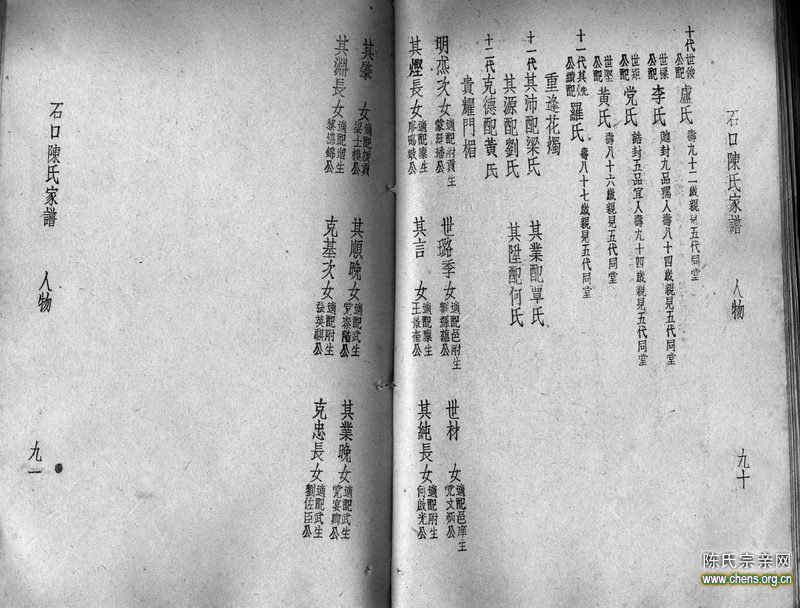 石口陳氏家譜 人物 九十
十代世俊公配盧氏 壽九十二歲親見五代同堂
世 公配李氏 貤封九品孺人壽八十四歲親見五代同堂
世矩公配党氏 誥封五品宜人壽九十四歲親見五代同堂
世堅公配黃氏 壽八十六歲親見五代同堂
十一代其 公 配羅氏 壽八十七歲親見五代同堂
重逢花燭
十一代其沛配梁氏 其業配覃氏
其源配劉氏 其陞配何氏
十二代克德配黃氏
貴耀門楣
明烝次女 適配附貢生蒙 璠公 世璐季女 適配邑附生劉輝蘊公 世材 女 適配邑庠生党文炳公
其煙長女 適配廩生廖鳴岐公 其言 女 適配廩生王 奎公 其純長女 適配附生何啟光公
其肇 女 適配拔貢梁士模公 其順晚女 適配武生党泰階公 其業晚女 適配武生党宴卿公
其淵長女 適配增生黎錦公 克基次女 適配附生張英騏公 克忠長女 適配武生劉佐臣公
石口陳氏家譜 人物 九一
陈氏宗亲网
www.chens.org.cn